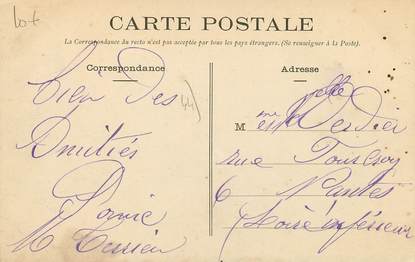 Lot
CARTE POSTALE
La Correspondance du recto n'est pas acceptée par tous les pays étrangers. (Se renseigner à la Poste).
Correspondance
Adresse
Bien des
44
Amitiés
M
Verdier
rue
6 Nantes
Loire inférieure